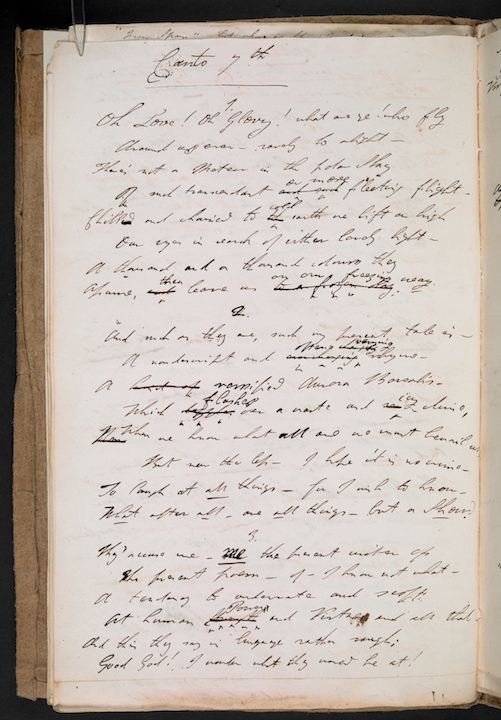 Canto 7th
1.
Oh Love! Oh Glory! what are ye! who fly
Around us ever — rarely to alight —
There's not a Meteor in the polar Sky
or more
Of such transcendant and such fleeting flight —
cold
Chill and chained to the earth we lift on high
Our eyes in search of either lovely light —
A thousand and a thousand colours they
then on our freezing
Assume, and leave us to a frozen day. way
2.
And such as they are, such my present tale is —
varying
A nondescript and rhyme —
A versified Aurora Borealis —
flashes icy
Which over a waste and clime,
When we know what all are we must bewail us
But ne'er the less — I hope it is no crime —
To laugh at all things — for I wish to know —
What after all — are all things — but a Show?
3.
They accuse me — me the present writer of
The present poem — of — I know not what —
A tendency to underrate and scoff
Power
At human and Virtue and all that —
And this they say in language rather rough;
Good God! I wonder what they would be at!